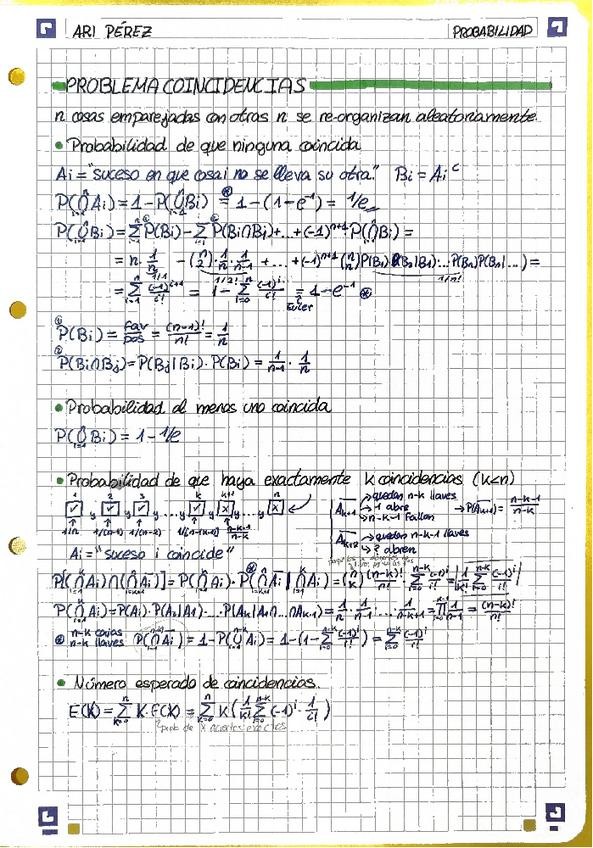 ARI PÉREZ
PROBABILIDAD
PROBLEMA COINCIDENCIAS
n cosas emparejadas con otras n se re-organizan aleatoriamente.
• Probabilidad de que ninguna coincida
Ai = "suceso en que cosa i no se lleva su otra." Bi = Ai^c
P(⋂_{i=1}^n Ai) = 1 - P(⋃_{i=1}^n Bi) =^⊛ 1 - (1 - e^-1) = 1/e
P(⋃_{i=1}^n Bi) = Σ P(Bi) - Σ P(Bi∩Bj) + ... + (-1)^{n+1} P(⋂_{i=1}^n Bi) =
= n · 1/n - (n 2) · 1/n · 1/n-1 + ... + (-1)^{n+1} (n n) P(B1) · P(B2|B1) · ... P(Bn|...) =
1/2! 1/n!
= Σ_{i=1}^n (-1)^{i+1}/i! = 1 - Σ_{i=0}^n (-1)^i/i! = 1 - e^-1 ⊛
Euler
① P(Bi) = fav/pos = (n-1)!/n! = 1/n
② P(Bi∩Bj) = P(Bj|Bi) · P(Bi) = 1/n-1 · 1/n
• Probabilidad al menos una coincida
P(⋃_{i=1}^n Bi) = 1 - 1/e
• Probabilidad de que haya exactamente k coincidencias (k<n)
1 2 3 k k+1 n
✓ y ✓ y ✓ y .... y ✓ y x y ... y x
1/n 1/(n-1) 1/(n-2) 1/(n-(k-1))
A̅k+1 → quedan n-k llaves
→ 1 abre → P(A̅k+1) = n-k-1/n-k
→ n-k-1 fallan
A̅k+2 → quedan n-k-1 llaves
→ ? abren
Ai = "suceso i coincide"
P[(⋂_{i=1}^k Ai)∩(⋂_{i=k+1}^n A̅i)] = P(⋂_{i=1}^k Ai) · P(⋂ A̅i | ⋂_{i=1}^k Ai) = (n k) (n-k)!/n! · Σ_{i=0}^{n-k} (-1)^i/i! = 1/k! Σ_{i=0}^{n-k} (-1)^i/i!
P(⋂_{i=1}^k Ai) = P(A1) · P(A2|A1) · ... · P(Ak|A1∩...∩Ak-1) = 1/n · 1/n-1 · ... · 1/n-k+1 = ∏ 1/n-i = (n-k)!/n!
⊛ n-k cajas
n-k llaves P(⋂ A̅i) = 1 - P(⋃ Ai) = 1 - (1 - Σ_{i=0}^{n-k} (-1)^i/i!) = Σ_{i=0}^{n-k} (-1)^i/i!
• Número esperado de coincidencias.
E(K) = Σ_{k=0}^n K · F(K) = Σ_{k=0}^n K (1/k! Σ_{i=0}^{n-k} (-1)^i · 1/i!)